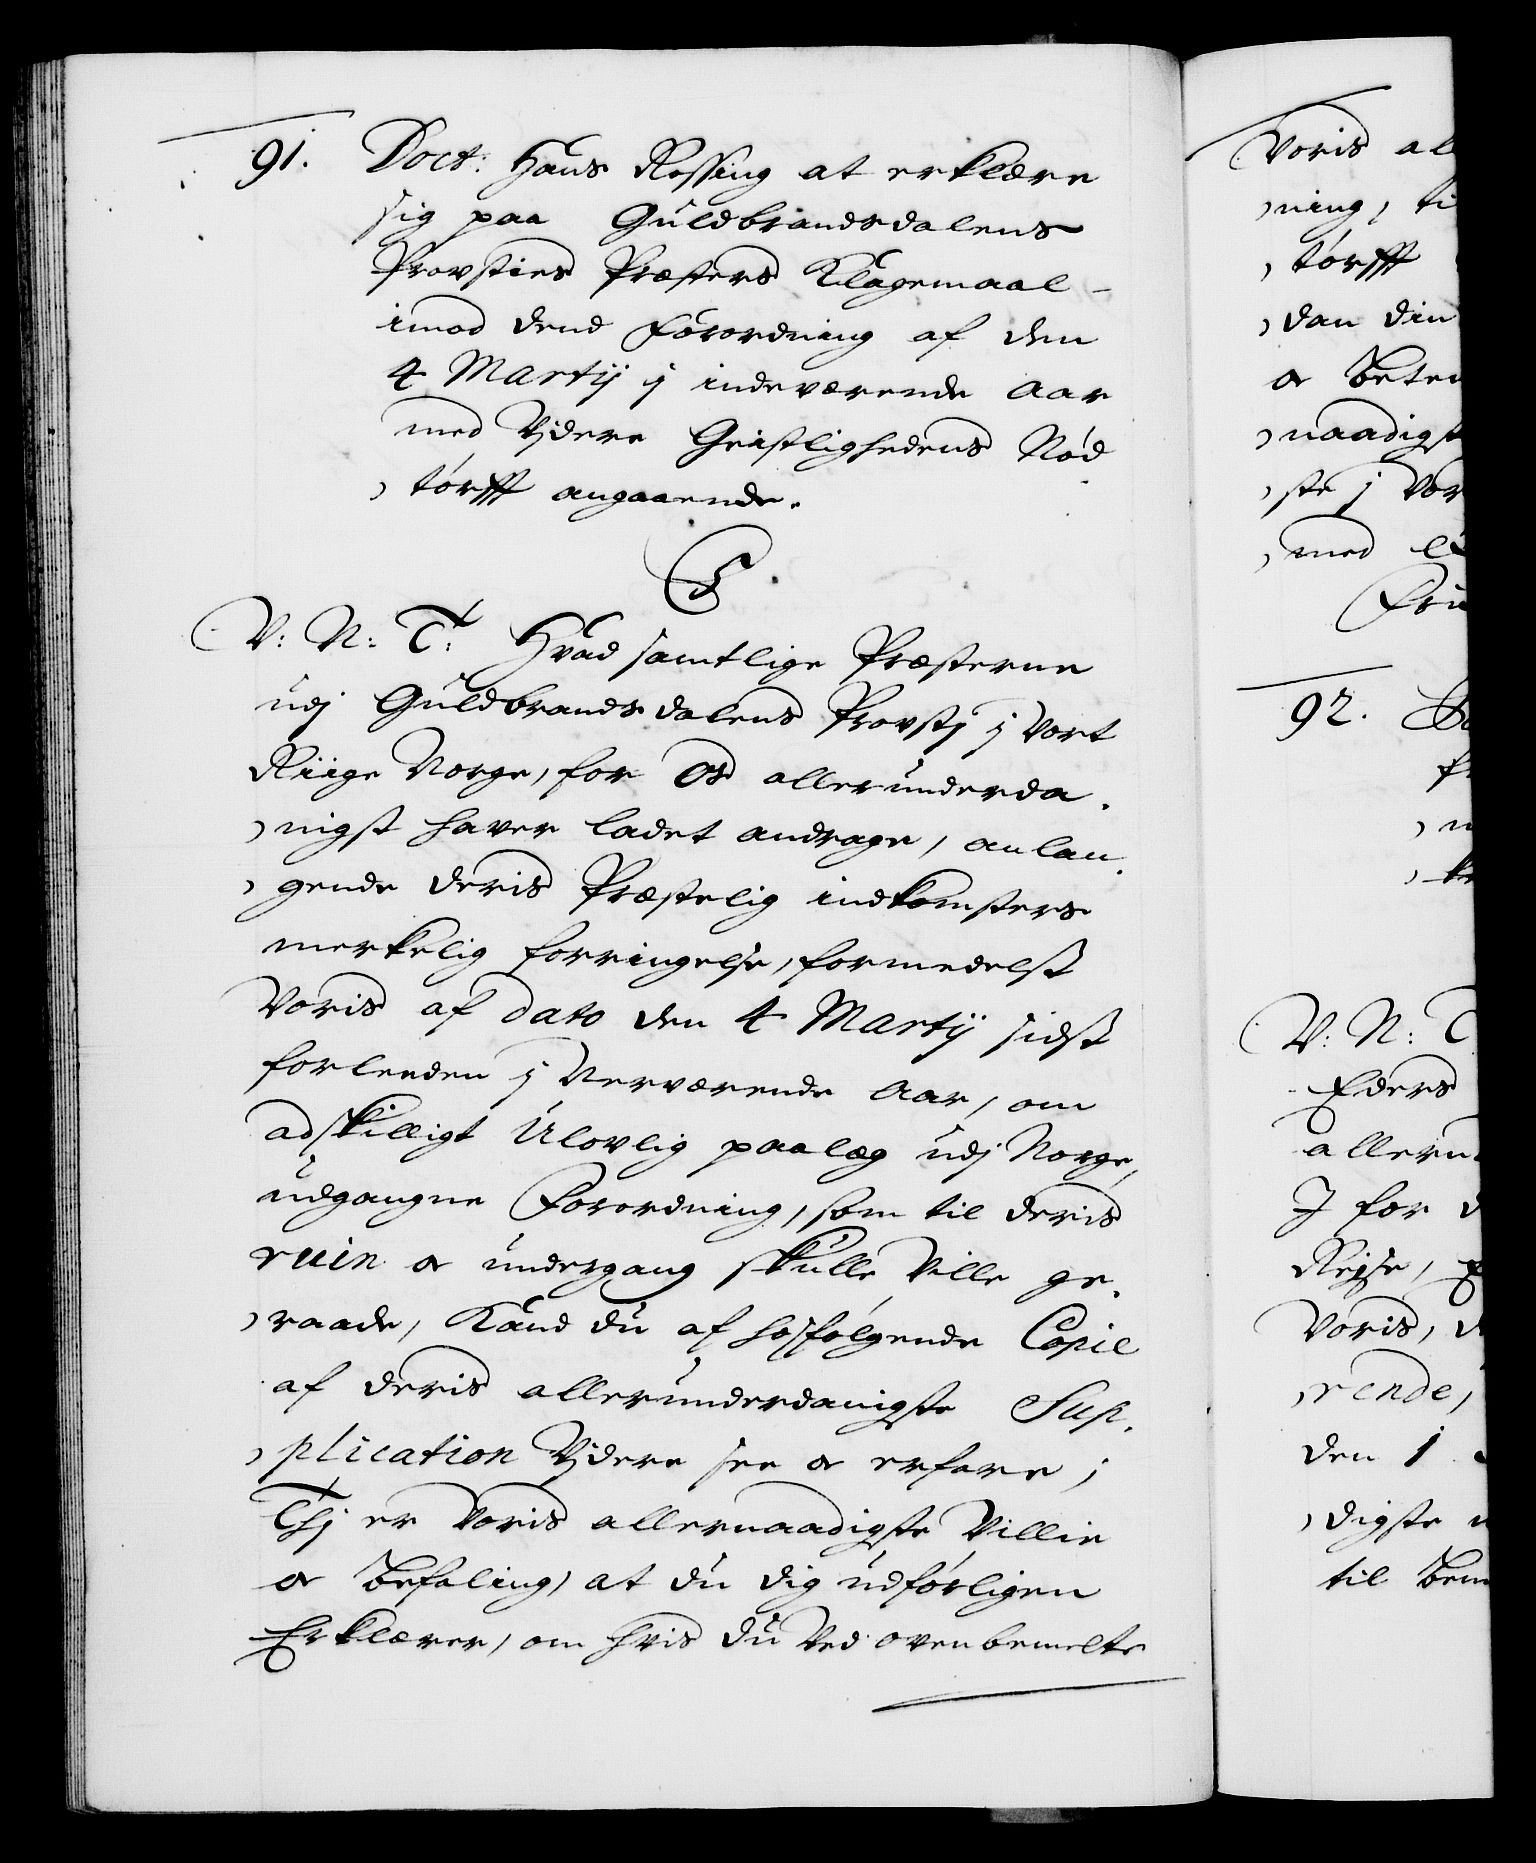 91. Doct: Hans Rossing at erklære
sig paa Guldbrandsdalens
Provsties Præsters Klagemaal
imod dend Forordning af den
4 Martij j indeværende Aar
med Vjdere Geistlighedens Nød
törfft angaaende.
C5.
V: N: T: Hvad samtlige Præsterne
udj Guldbrandsdalens Provstj j vort
Riige Norge, for Os allerunderda
nigst haver ladet andrage, anlan
gende deris Præstelig indkomsters
merkelig forringelse, formedelst
Voris af dato den 4 Martij sidst
forleeden j Nerværende Aar, om
adskilligt Ulovlig paalæg udj Norge,
udgangne Forordning, som til deris
ruin og undergang skulle Ville ge
raade, Kand du af hosfølgende Copie
af deris allerunderdanigste Sup
plication Vjdere see og erfare;
Thj er Voris allernaadigste Villie
og Befaling, at du dig udførligen
Erklærer, om hvis du Ved ovenbemelte
Voris al
ning, ti
törfft
dan din
og beten
naadigst
ste j Vor
med
92.
V: N: T
Eders
allerun
J for d
Rejse,
Voris, d
rende,
den 1
digste
til bem